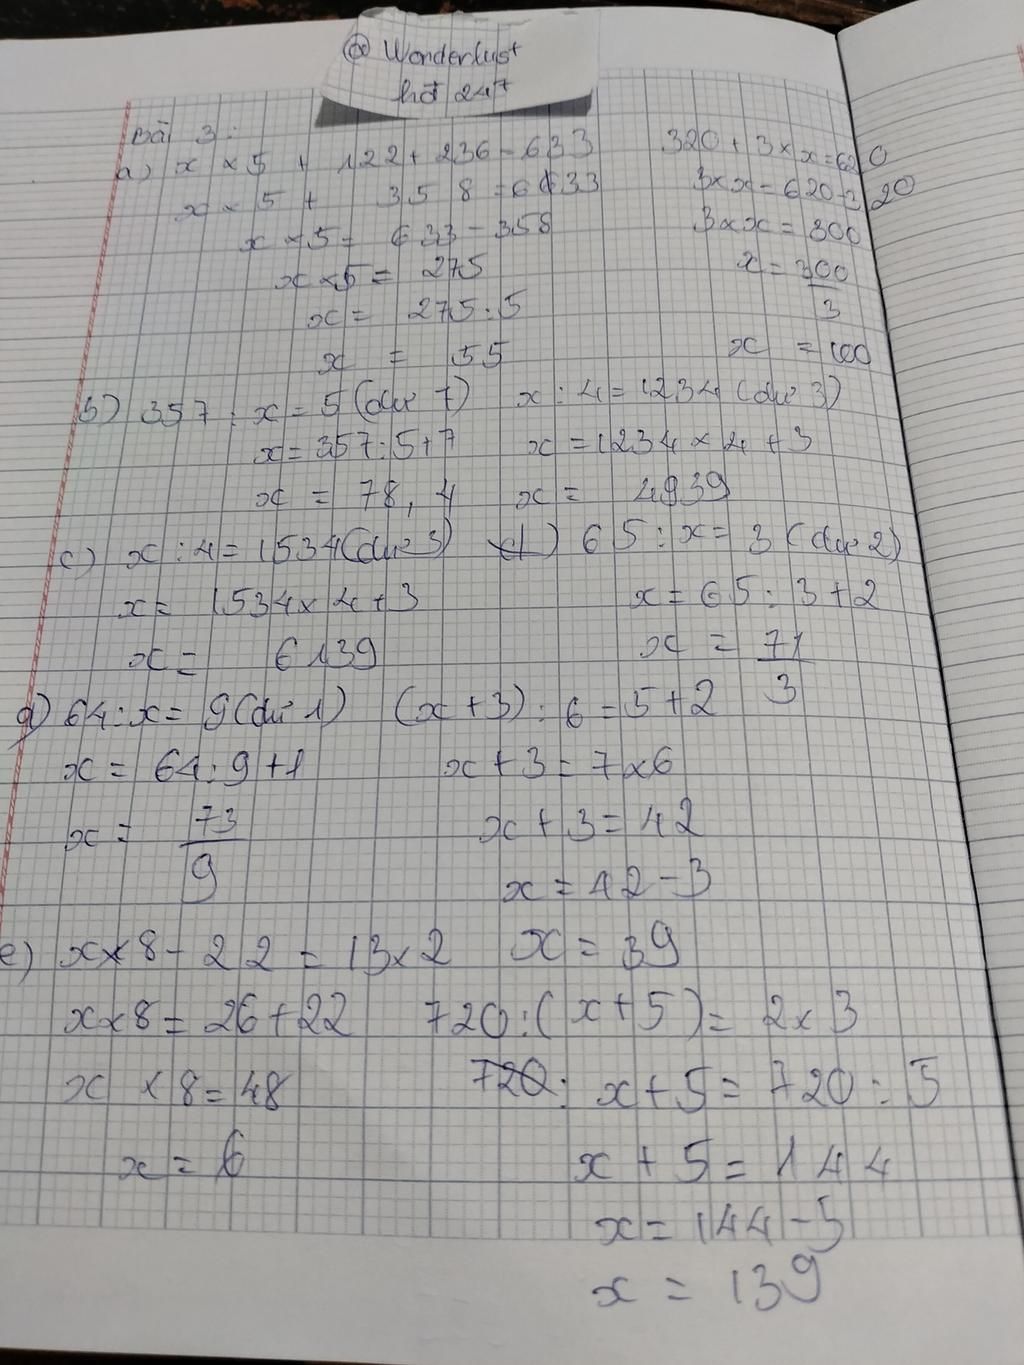 @ Wonderlust
hđ 247
Bài 3:
a) x × 5 + 122 + 236 = 633
x × 5 + 358 = 633
x × 5 = 633 - 358
x × 5 = 275
x = 275 : 5
x = 55
320 + 3 × x = 620
3 × x = 620 - 320
3 × x = 300
x = 300/3
x = 100
b) 357 : x = 5 (dư 7)
x = 357 : 5 + 7
x = 78,4
x : 4 = 1234 (dư 3)
x = 1234 × 4 + 3
x = 4939
c) x : 4 = 1534 (dư 3)
x = 1534 × 4 + 3
x = 6139
d) 65 : x = 3 (dư 2)
x = 65 : 3 + 2
x = 71/3
d) 64 : x = 9 (dư 1)
x = 64 : 9 + 1
x = 73/9
(x + 3) : 6 = 5 + 2
x + 3 = 7 × 6
x + 3 = 42
x = 42 - 3
x = 39
e) x × 8 - 22 = 13 × 2
x × 8 = 26 + 22
x × 8 = 48
x = 6
720 : (x + 5) = 2 × 3
720 : x + 5 = 720 : 5
x + 5 = 144
x = 144 - 5
x = 139